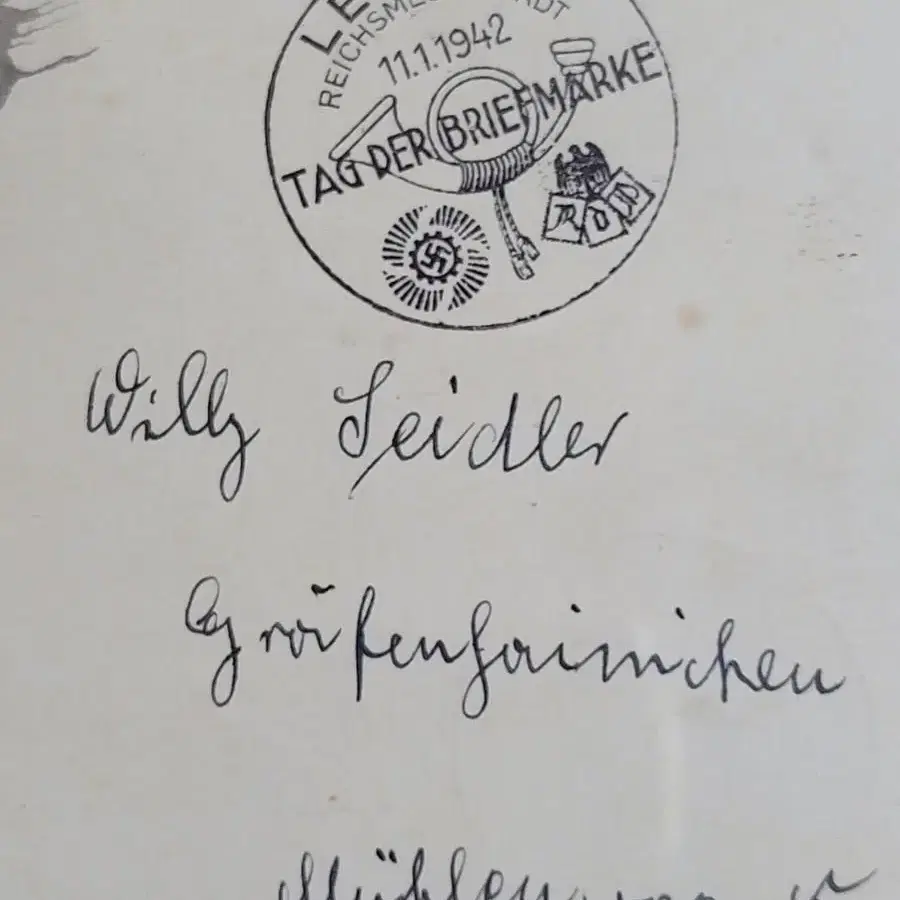 REICHSMESSESTADT
11.1.1942
TAG DER BRIEFMARKE
RDP
Willy Seidler
Gräfenhainichen